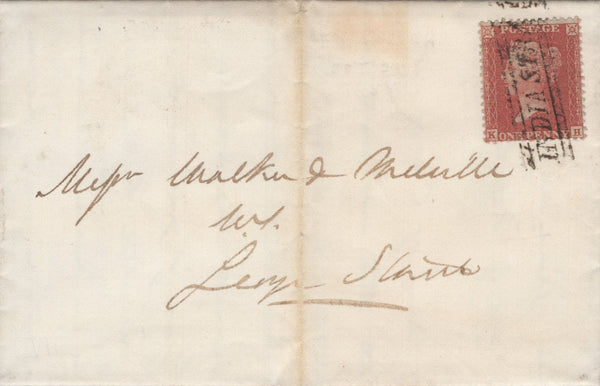 POSTAGE
K ONE PENNY H
INDIA ST
Messrs Walker & Melville
W.S.
George Street